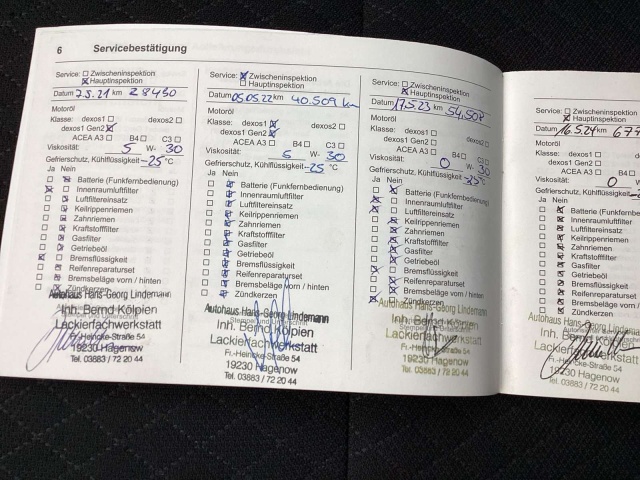 6 Servicebestätigung
Service: Zwischeninspektion
Hauptinspektion
Datum 7.5.21 km 28450
Motoröl
Klasse: dexos1 dexos2
dexos1 Gen2
ACEA A3 B4 C3
Viskosität: 5 W- 30
Gefrierschutz, Kühlflüssigkeit -25 °C
Ja Nein
Batterie (Funkfernbedienung)
Innenraumluftfilter
Luftfiltereinsatz
Keilrippenriemen
Zahnriemen
Kraftstofffilter
Gasfilter
Getriebeöl
Bremsflüssigkeit
Reifenreparaturset
Bremsbeläge vorn / hinten
Zündkerzen
Autohaus Hans-Georg Lindemann
Inh. Bernd Kölpien
Lackierfachwerkstatt
Fr.-Heincke-Straße 54
19230 Hagenow
Tel. 03883 / 72 20 44
Service: Zwischeninspektion
Hauptinspektion
Datum 05.05.22 km 40.509 km
Motoröl
Klasse: dexos1 dexos2
dexos1 Gen2
ACEA A3 B4 C3
Viskosität: 5 W- 30
Gefrierschutz, Kühlflüssigkeit -25 °C
Ja Nein
Batterie (Funkfernbedienung)
Innenraumluftfilter
Luftfiltereinsatz
Keilrippenriemen
Zahnriemen
Kraftstofffilter
Gasfilter
Getriebeöl
Bremsflüssigkeit
Reifenreparaturset
Bremsbeläge vorn / hinten
Zündkerzen
Autohaus Hans-Georg Lindemann
Inh. Bernd Kölpien
Lackierfachwerkstatt
Fr.-Heincke-Straße 54
19230 Hagenow
Tel. 03883 / 72 20 44
Service: Zwischeninspektion
Hauptinspektion
Datum 17.5.23 km
Motoröl
Klasse: dexos1 dexos2
dexos1 Gen2
ACEA A3 B4 C3
Viskosität: 0 W- 30
Gefrierschutz, Kühlflüssigkeit
Ja Nein
Batterie (Funkfernbedienung)
Innenraumluftfilter
Luftfiltereinsatz
Keilrippenriemen
Zahnriemen
Kraftstofffilter
Gasfilter
Getriebeöl
Bremsflüssigkeit
Reifenreparaturset
Bremsbeläge vorn / hinten
Zündkerzen
Autohaus Hans-Georg Lindemann
Inh. Bernd Kölpien
Lackierfachwerkstatt
Fr.-Heincke-Straße 54
19230 Hagenow
Tel. 03883 / 72 20 44
Service: Zwischeninspektion
Hauptinspektion
Datum 16.5.24 km
Motoröl
Klasse: dexos1
dexos1 Gen2
ACEA A3
Viskosität: 0
Gefrierschutz, Kühlflüssigkeit
Ja Nein
Batterie (Funkfernb
Innenraumluftfilter
Luftfiltereinsatz
Keilrippenriemen
Zahnriemen
Kraftstofffilter
Gasfilter
Getriebeöl
Bremsflüssigkeit
Reifenreparaturset
Bremsbeläge vorn
Zündkerzen
Autohaus Hans-Georg
Inh. Bernd
Lackierfachwerkstatt
Fr.-Heincke-Straße 54
19230 Hagenow
Tel. 03883 / 72 20 44